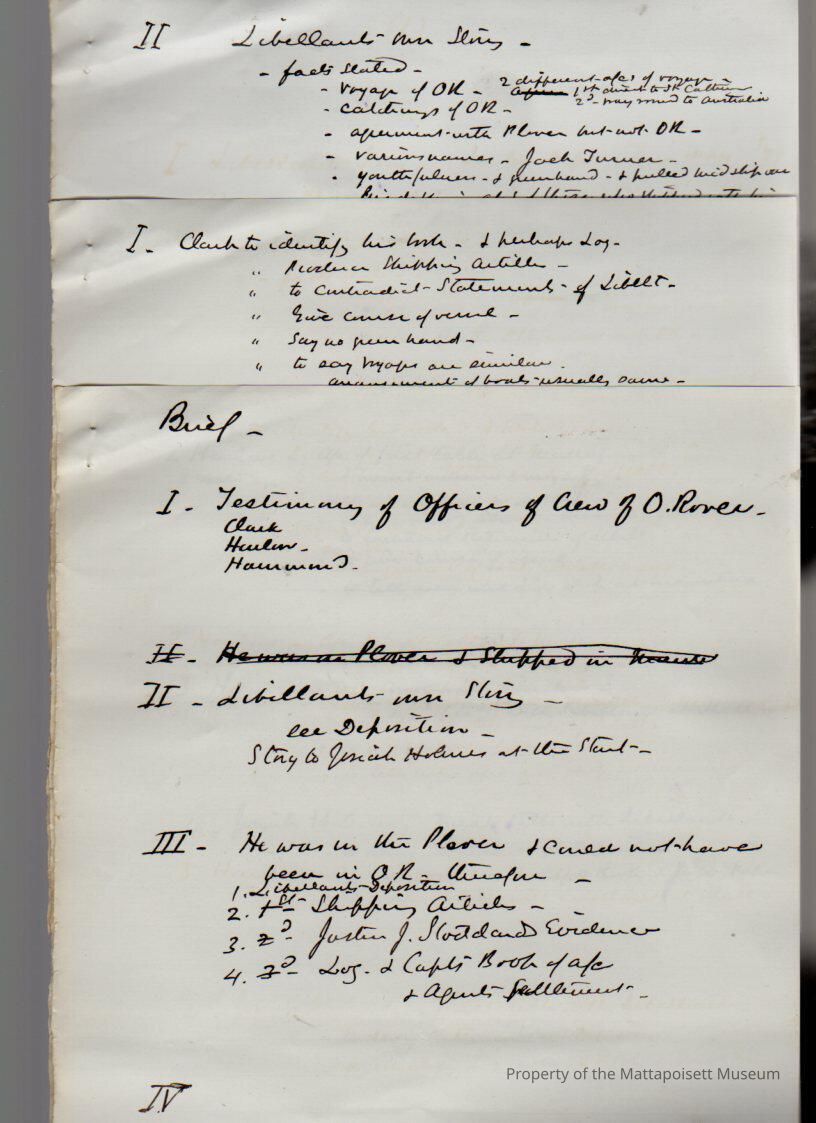 II Libellants own Story -
- facts stated -
- voyage of OR - 2 different a/cs of voyage -
1st direct to St Cath
- catchings of OR - 2d - way round to Australia
- agreement with Plover but not OR -
- various names - Jack Turner -
- youthfulness - & greenhand - & pulled midship oar
I - Clark to identify his book - & perhaps Log -
" Produce Shipping Articles -
" to contradict Statements of Libellt -
" Give course of vessel -
" Say no green hand -
" to say voyages are similar.
arrangement of boats usually same -
Brief -
I - Testimony of Officers of Crew of O. Rover -
Clark
Harlow -
Hammond -
II - He was in Plover & Shipped in
II - Libellants own Story -
see Deposition -
Story to Josiah Holmes at the Start -
III - He was in the Plover & could not have
been in OR - therefore -
1. Libellants Deposition
2. 1st Shipping Articles -
3. 2d - Justin J. Stoddards Evidence
4. 3d - Log - & Capts Book of a/c
& Agents Settlement -
Property of the Mattapoisett Museum
IV